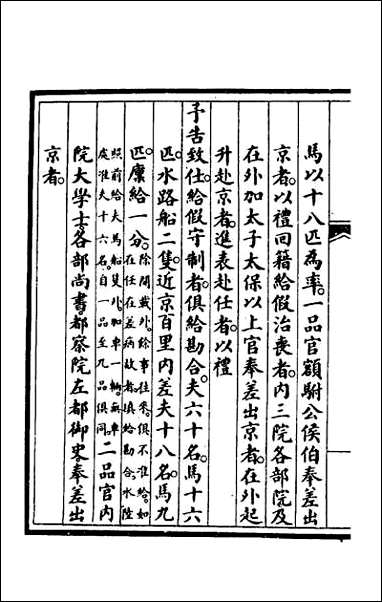 馬以十八匹為率一品官額駙公侯伯奉差出
京者以禮回籍給假治喪者內三院各部院及
在外加太子太保以上官奉差出京者在外起
升赴京者進表赴任者以禮
予告致仕給假守制者俱給勘合夫六十名馬十六
匹水路船二隻近京百里內差夫十八名馬九
匹廩給一分除閒載外餘事往來俱不准給如
在任在差病故者俱給勘合水陸
照前給夫馬船隻外加車一輛無車
處准夫十六名自一品至九品俱同二品官內
院大學士各部尚書都察院左都御史奉差出
京者